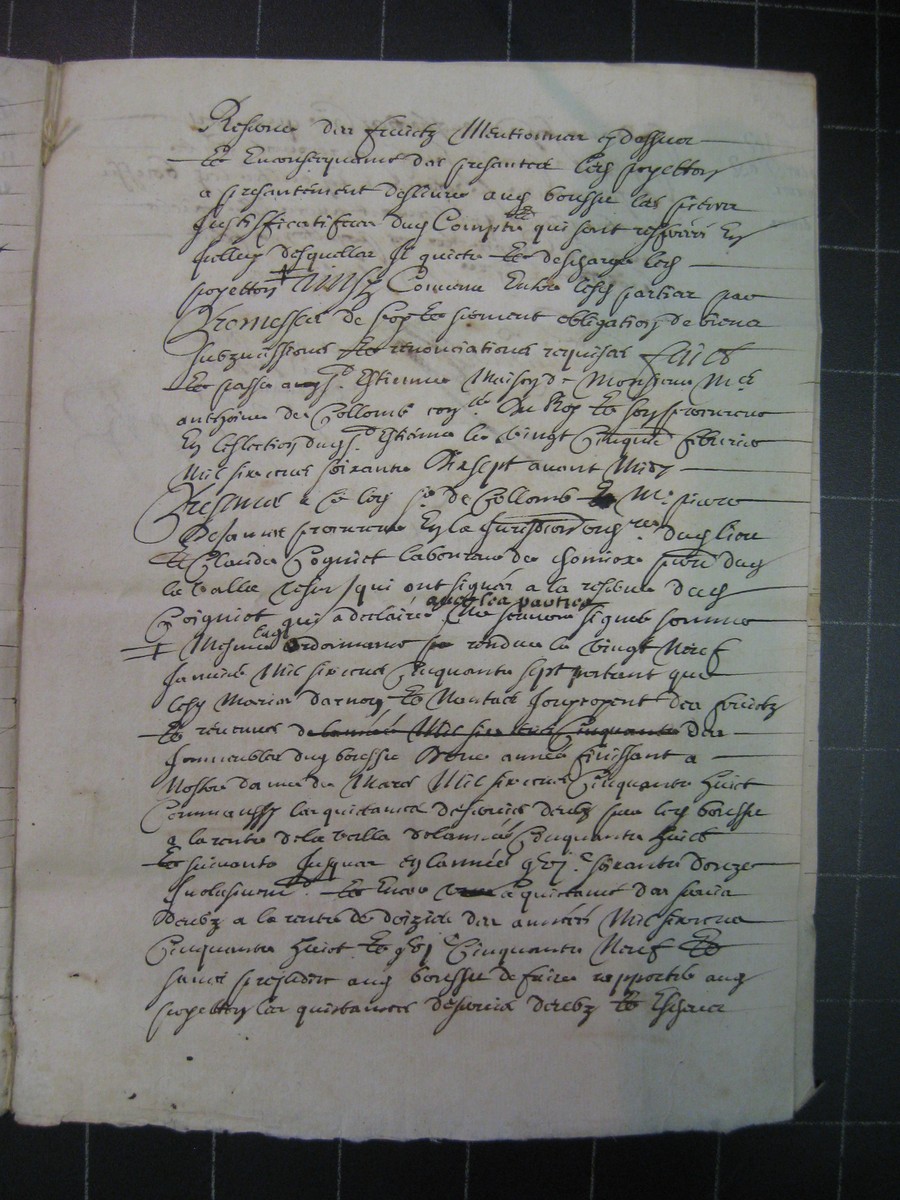 Restans des fruictz Mentionnes cydessus
Et Enconsequance des presantes lesd poyetton
a presantement deslivré aud boussu les pieces
Justifficatifves dud Compte qui sont resserés En
Icelluy desquelles Il quicte Et descharge lesd
poyetton Ainsy Convenu Entre lesd parties par
Promesses de foy Et serment obligation de biens
submissions Et renonciations requises Faict
Et passé aud St Estienne Maison de Monsieur Me
anthoine de Collomb con.er Du Roy Et son procureur
En leslection dud St Estienne le vingt Cinquie febvrier
Mil six cens soixante Dixsept avant Midy
Presents a ce led sr de Collomb Et Me pierre
procureur En la Jurisdiction dud lieu
Et Claude Coignet laboureur de
la valla qui ont signés a la reserve dud
Coignet qui a declairé ne sçavoir signer somme
avec les parties
Mesme Ordonnance rendue le vingt Neuf
Janvier Mil six cens Cinquante sept portant que
lesd Maries darnoy Et Nantas Jouyroyent des fruictz
Et revenus de lannée Mil six cens Cinquante des
Immeubles dud boussu Dune année finissant a
Nostre dame de Mars Mil six cens Cinquante huict
Comm'aussy les quictances desservis deubz par led boussu
a la rente de la valla de lannée Cinquante huict
Et suivante Jusques en lannée gvj c soixante douze
Inclusivemt Et Encor quictance des servis
deubz a la rente de doizieu des années Mil six cens
Cinquante huict Et gvj c Cinquante Neuf Et
sans prejudice aud boussu de faire rapporter aud
poyetton les quictances desservis deubz Et Escheus